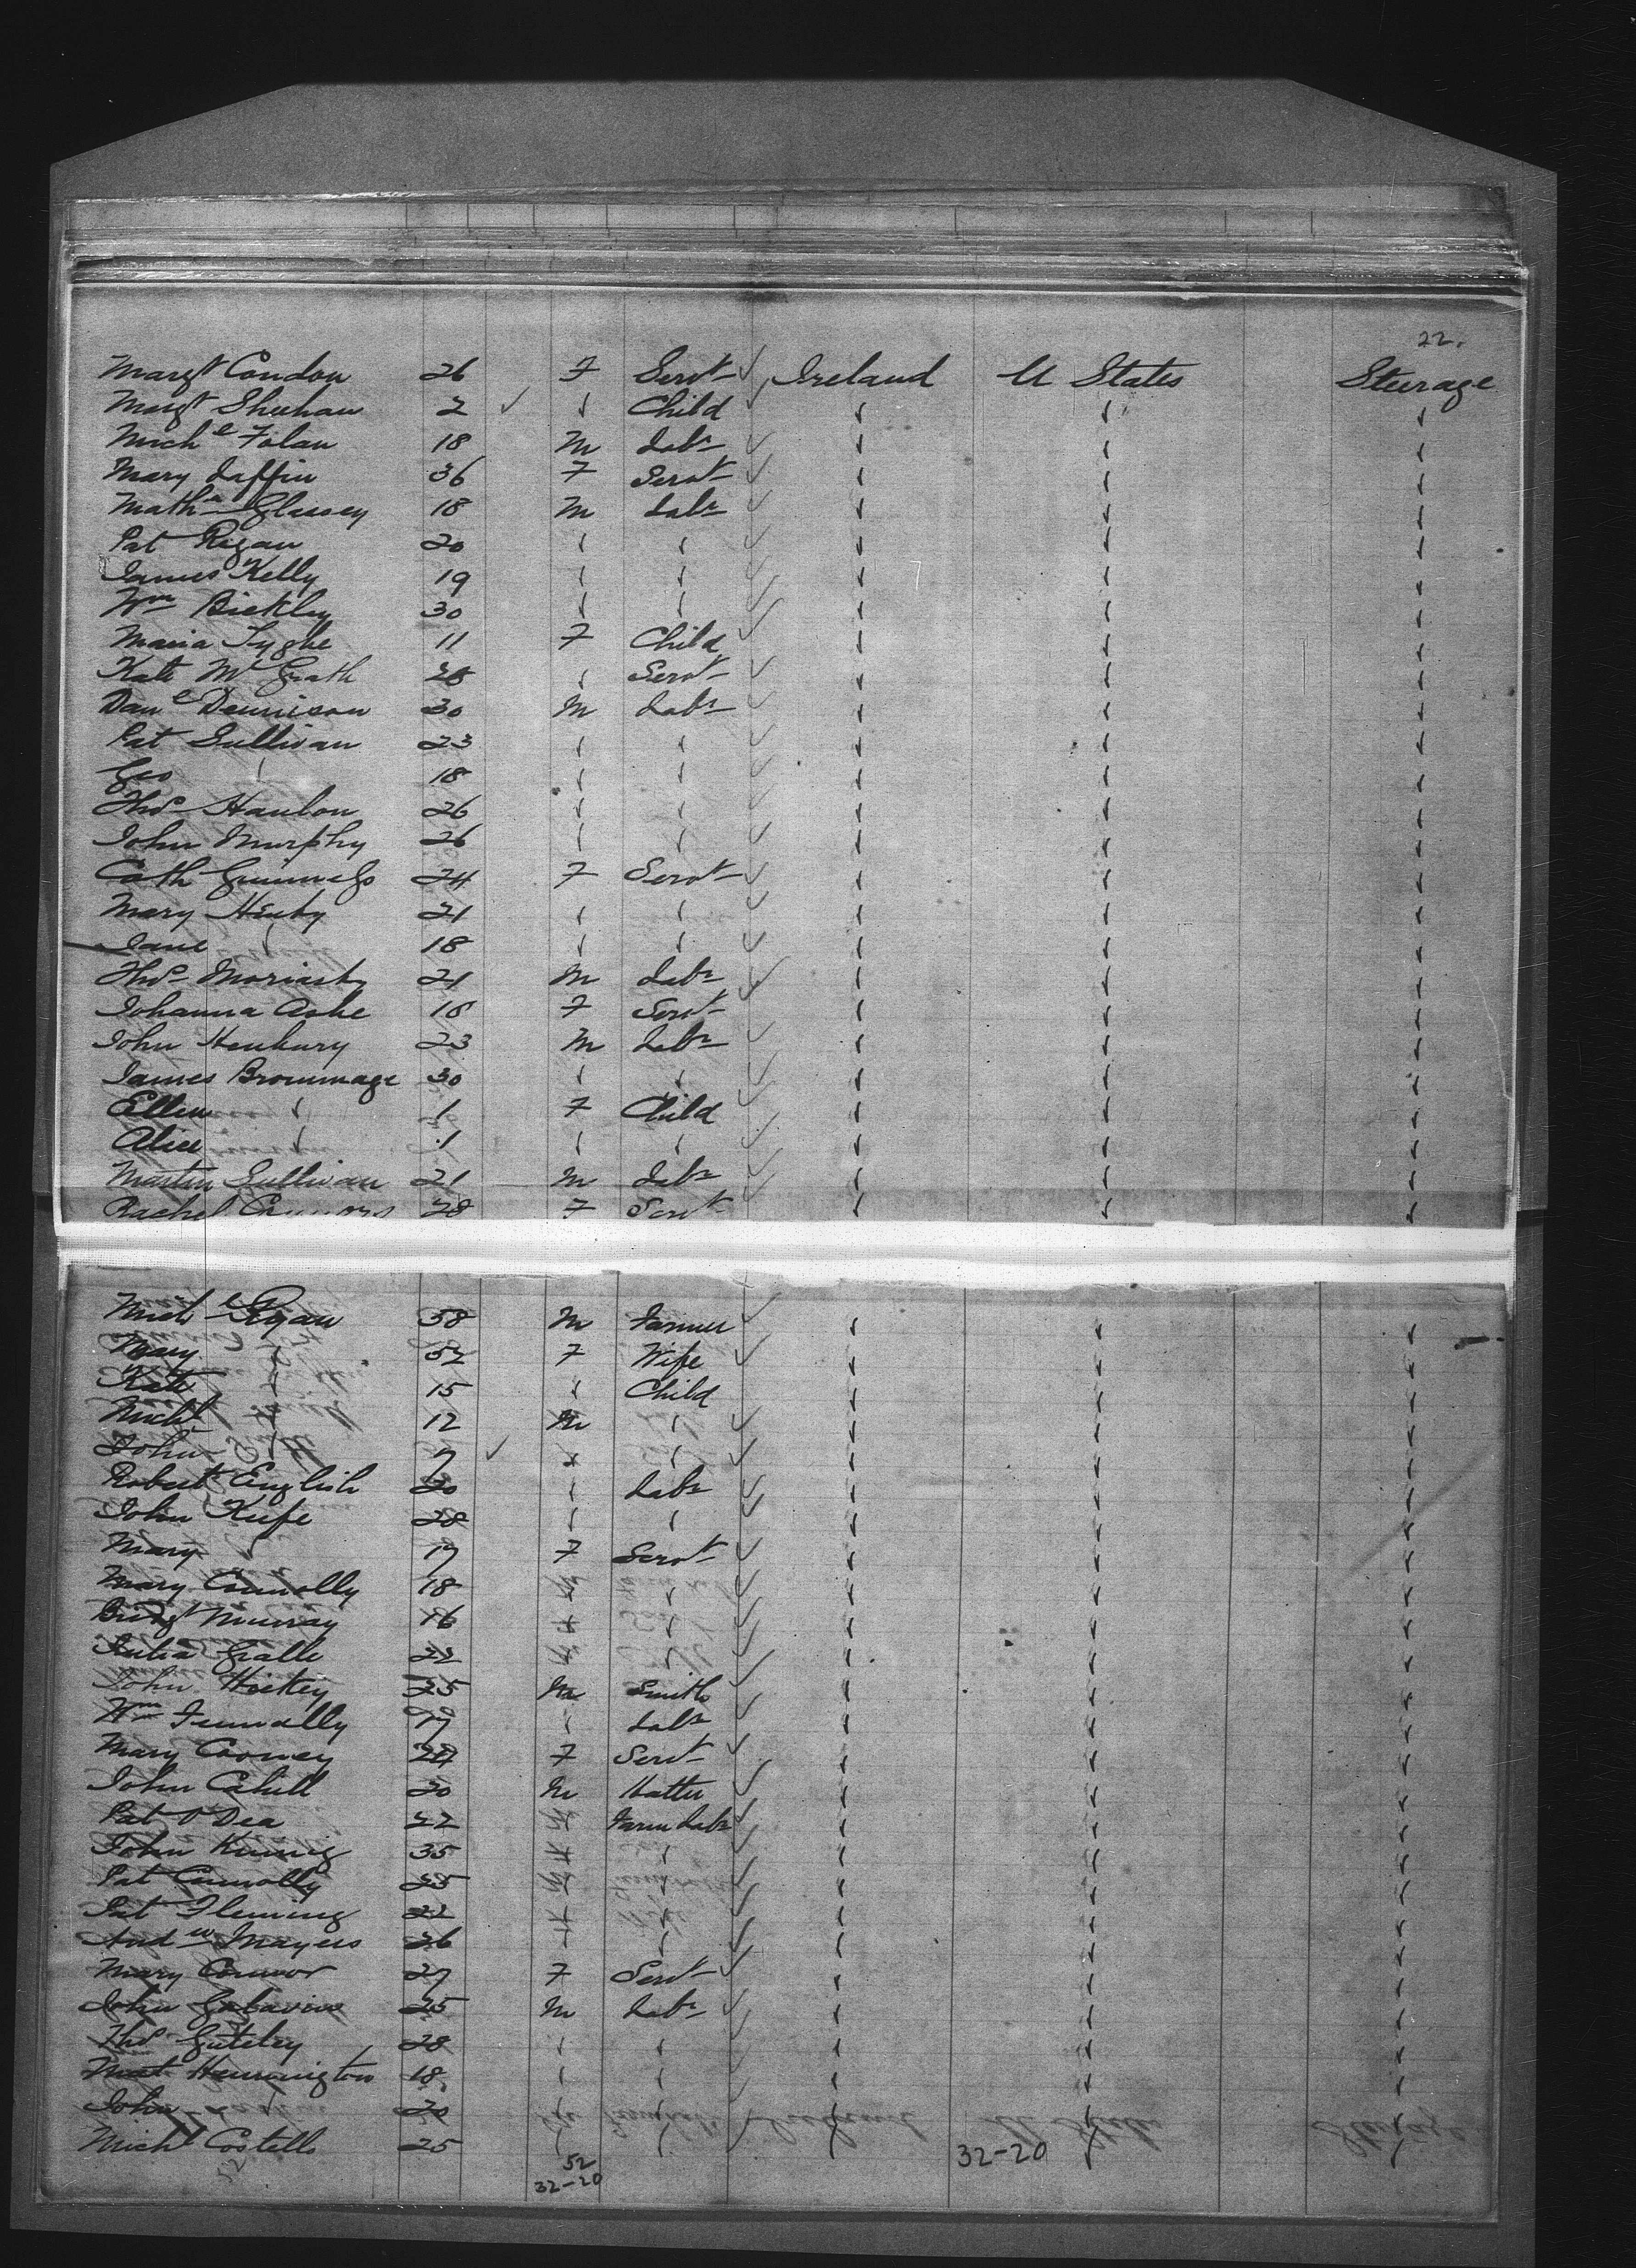 22.
Margt Condon 26 F Servt Ireland U States Steerage
Margt Sheehan 2 ✓ " Child " " "
Michl Folan 18 M Labr " " "
Mary Laffin 36 F Servt " " "
Mathw Glassey 18 M Labr " " "
Pat Regan 20 " " " " "
James Kelly 19 " " " " "
Wm Bickley 30 " " " " "
Maria Tyghe 11 F Child " " "
Kate Mc Grath 28 " Servt " " "
Danl Dennison 30 M Labr " " "
Pat Sullivan 23 " " " " "
Geo " 18 " " " " "
Thos Hanlon 26 " " " " "
John Murphy 26 " " " " "
Cath 24 F Servt " " "
Mary 21 " " " " "
Jane " 18 " " " " "
Thos Moriarty 21 M Labr " " "
Johanna Ashe 18 F Servt " " "
John Henbury 23 M Labr " " "
James Brommage 30 " " " " "
Ellen " 1 F Child " " "
Alice " 1 " " " " "
Martin Sullivan 21 M Labr " " "
Rachel 28 F Servt " " "
Michl Ryan 58 M Farmer " " "
Mary " 52 F Wife " " "
Kate " 15 " Child " " "
Michl " 12 M " " " "
John " 7 ✓ " " " " "
Robert English 20 " Labr " " "
John Keefe 28 " " " " "
Mary " 17 F Servt " " "
Mary Connolly 18 " " " " "
Bridgt Murray 16 " " " " "
Julia Gralle 22 " " " " "
John Hickey 25 M Smith " " "
Wm Funnally 17 " Labr " " "
Mary Cooney 24 F Servt " " "
John Cahill 20 M Hatter " " "
Pat O'Dea 22 " Farm Labr " " "
John 35 " " " " "
Pat Connolly 25 " " " " "
Pat Fleming 22 " " " " "
Andw Mayers 26 " " " " "
Mary Connor 27 F Servt " " "
John Galavin 25 M Labr " " "
Thos Gateley 28 " " " " "
Mat Hennington 18 " " " " "
John 20 " " " " "
Michl Costello 25 " " " " "
52
32-20
32-20